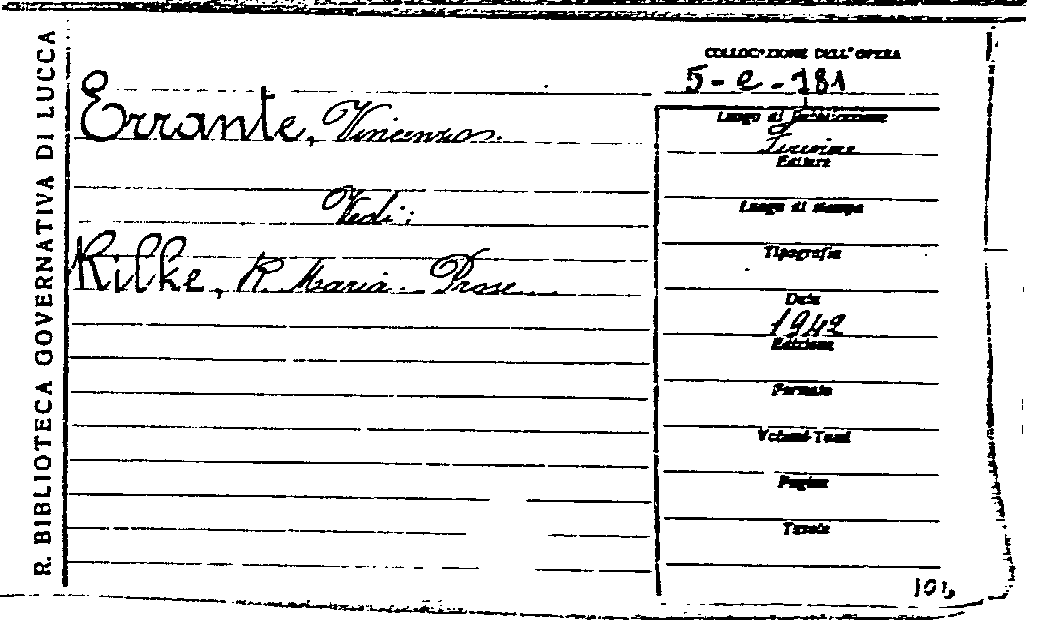 R. BIBLIOTECA GOVERNATIVA DI LUCCA
Errante, Vincenzo.
Vedi:
Rilke, R. Maria - Prose
COLLOCAZIONE DELL'OPERA
5-e-181
Luogo di Pubblicazione
Firenze
Editore
Luogo di stampa
Tipografia
Data
1942
Edizione
Formato
Volumi-Tomi
Pagine
Tavole